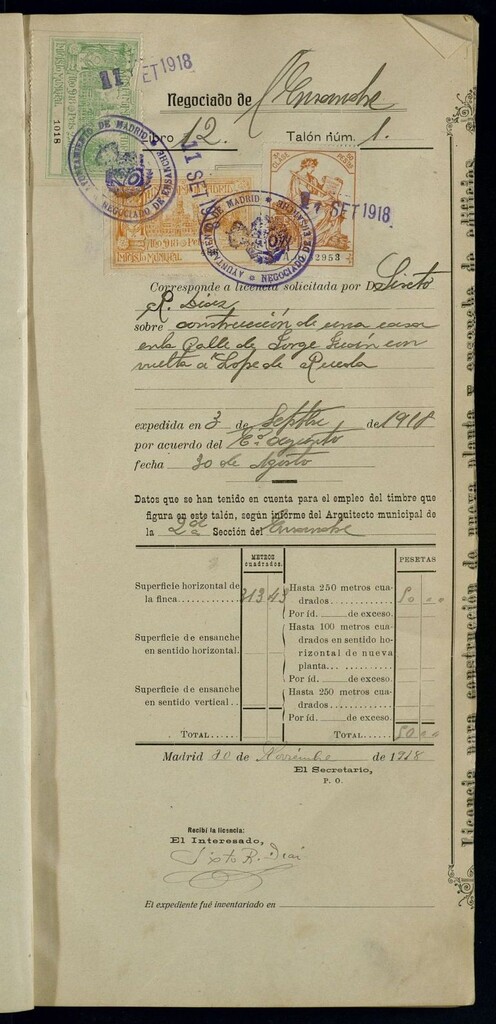 11 SET 1918
Negociado de Ensanche
Libro 12. Talón núm. 1.
IMPUESTO MUNICIPAL
AÑO 918
1018
AYUNTAMIENTO DE MADRID
NEGOCIADO DE ENSANCHE
11 SET 1918
MADRID
AÑO 918
IMPUESTO MUNICIPAL
AYUNTAMIENTO DE MADRID
NEGOCIADO DE ENSANCHE
11 SET 1918
2953
Corresponde a licencia solicitada por D. Sixto
R. Diaz
sobre construcción de una casa
en la Calle de Jorge Juán con
vuelta a Lope de Rueda
expedida en 3 de Septbre de 1918
por acuerdo del
fecha 30 de Agosto
Datos que se han tenido en cuenta para el empleo del timbre que
figura en este talón, según informe del Arquitecto municipal de
la 2ª Sección del Ensanche
METROS cuadrados.
PESETAS
Superficie horizontal de
la finca 313 43
Superficie de ensanche
en sentido horizontal.
Superficie de ensanche
en sentido vertical
TOTAL
Hasta 250 metros cua-
drados 50
Por íd. de exceso.
Hasta 100 metros cua-
drados en sentido ho-
rizontal de nueva
planta
Por íd. de exceso.
Hasta 250 metros cua-
drados
Por íd. de exceso.
TOTAL 50
Madrid 20 de Noviembre de 1918
El Secretario,
P. O.
Recibí la licencia:
El Interesado,
Sixto R. Diaz
El expediente fué inventariado en
Licencia para construcción de nueva planta y ensanche de edificios